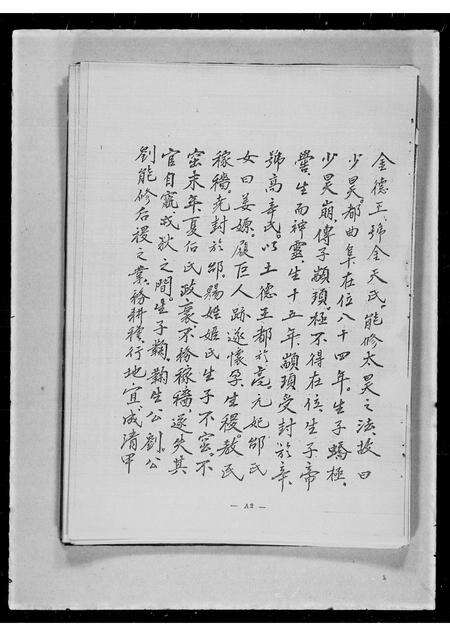 金德王號金天氏。能修太昊之法故曰
少昊。都曲阜在位八十四年。生子蟜極。
少昊崩。傳子顓頊。極不得在位。生子帝
嚳。生而神靈。生十五年。顓頊受封於辛。
號高辛氏。以土德王都於亳。元妃邰氏
女曰姜嫄。履巨人跡遂懷孕。生稷。教民
稼穡。先封於邰。賜姓姬氏生子不窋。不
窋末年。夏后氏政衰不務稼穡。遂失其
官自竄戎狄之間。生子鞠。鞠生公劉。公
劉能修后稷之業。務耕種。行地宜成消甲